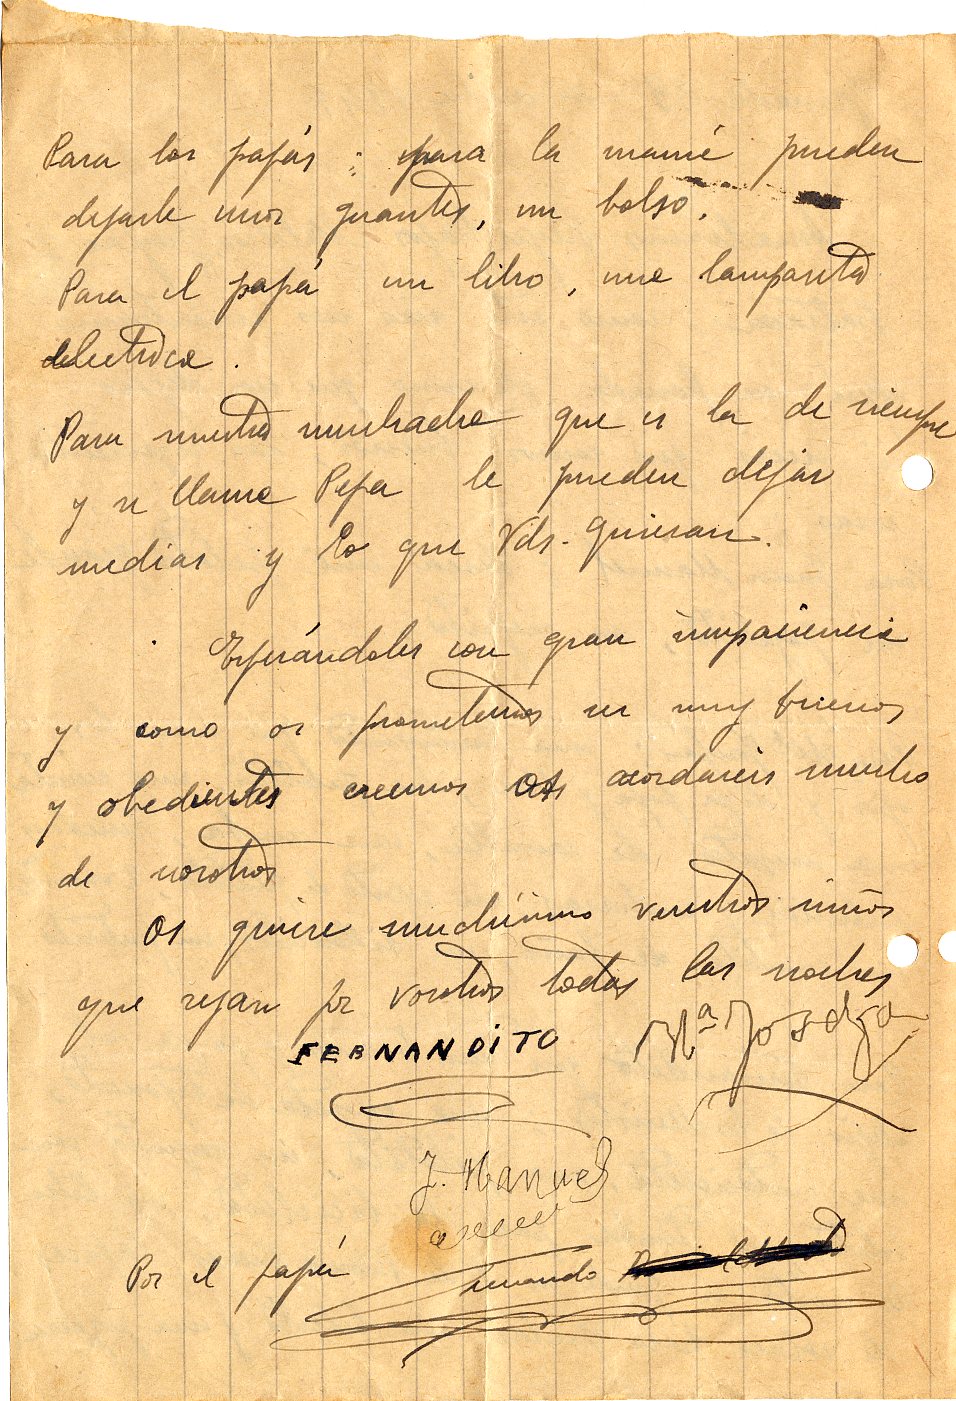 Para los papás: para la mamá pueden
dejarle unos guantes, un bolso.
Para el papá un libro, una lamparita
electrica.
Para nuestra muchacha que es la de siempre
y se llama Pepa le pueden dejar
medias y lo que Vds. quieran.
Esperándoles con gran impaciencia
y como os prometemos ser muy buenos
y obedientes creemos os acordareis mucho
de nosotros
Os quiere muchísimo vuestros niños
que rezan por vosotros todas las noches
FERNANDITO Mª Josefa
J. Manuel
Por el papá Fernando